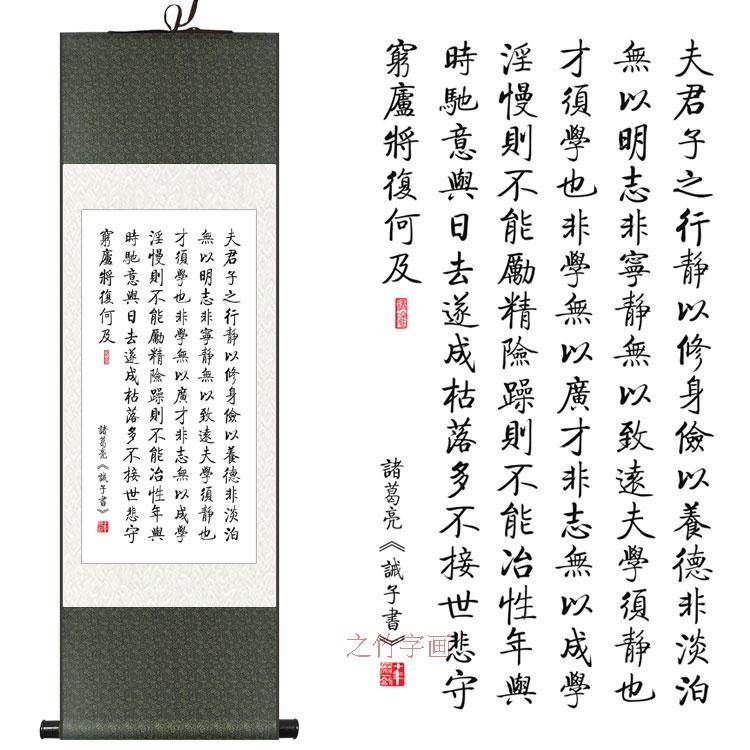 夫君子之行靜以修身儉以養德非淡泊
無以明志非寧靜無以致遠夫學須靜也
才須學也非學無以廣才非志無以成學
淫慢則不能勵精險躁則不能冶性年與
時馳意與日去遂成枯落多不接世悲守
窮廬將復何及
諸葛亮《誡子書》
之竹字画
夫君子之行靜以修身儉以養德非淡泊
無以明志非寧靜無以致遠夫學須靜也
才須學也非學無以廣才非志無以成學
淫慢則不能勵精險躁則不能冶性年與
時馳意與日去遂成枯落多不接世悲守
窮廬將復何及
諸葛亮《誡子書》